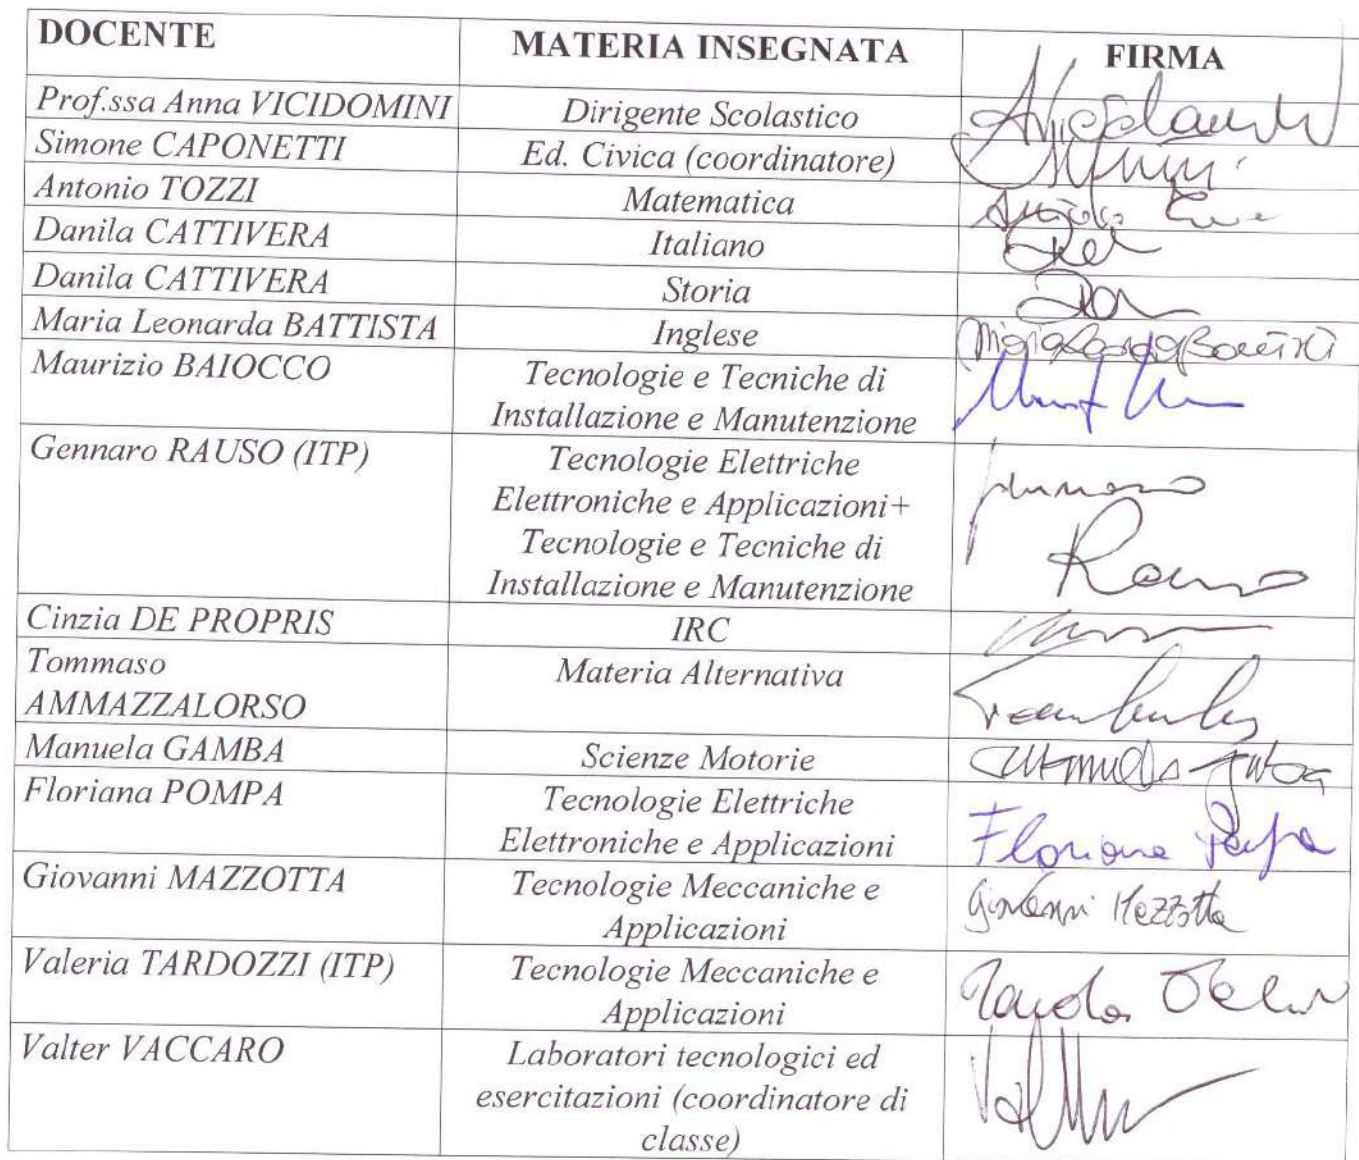 DOCENTE MATERIA INSEGNATA FIRMA
Prof.ssa Anna VICIDOMINI Dirigente Scolastico
Simone CAPONETTI Ed. Civica (coordinatore)
Antonio TOZZI Matematica
Danila CATTIVERA Italiano
Danila CATTIVERA Storia
Maria Leonarda BATTISTA Inglese
Maurizio BAIOCCO Tecnologie e Tecniche di
Installazione e Manutenzione
Gennaro RAUSO (ITP) Tecnologie Elettriche
Elettroniche e Applicazioni+
Tecnologie e Tecniche di
Installazione e Manutenzione
Cinzia DE PROPRIS IRC
Tommaso Materia Alternativa
AMMAZZALORSO
Manuela GAMBA Scienze Motorie
Floriana POMPA Tecnologie Elettriche
Elettroniche e Applicazioni Floriana Pompa
Giovanni MAZZOTTA Tecnologie Meccaniche e Giovanni Mazzotta
Applicazioni
Valeria TARDOZZI (ITP) Tecnologie Meccaniche e
Applicazioni
Valter VACCARO Laboratori tecnologici ed
esercitazioni (coordinatore di
classe)